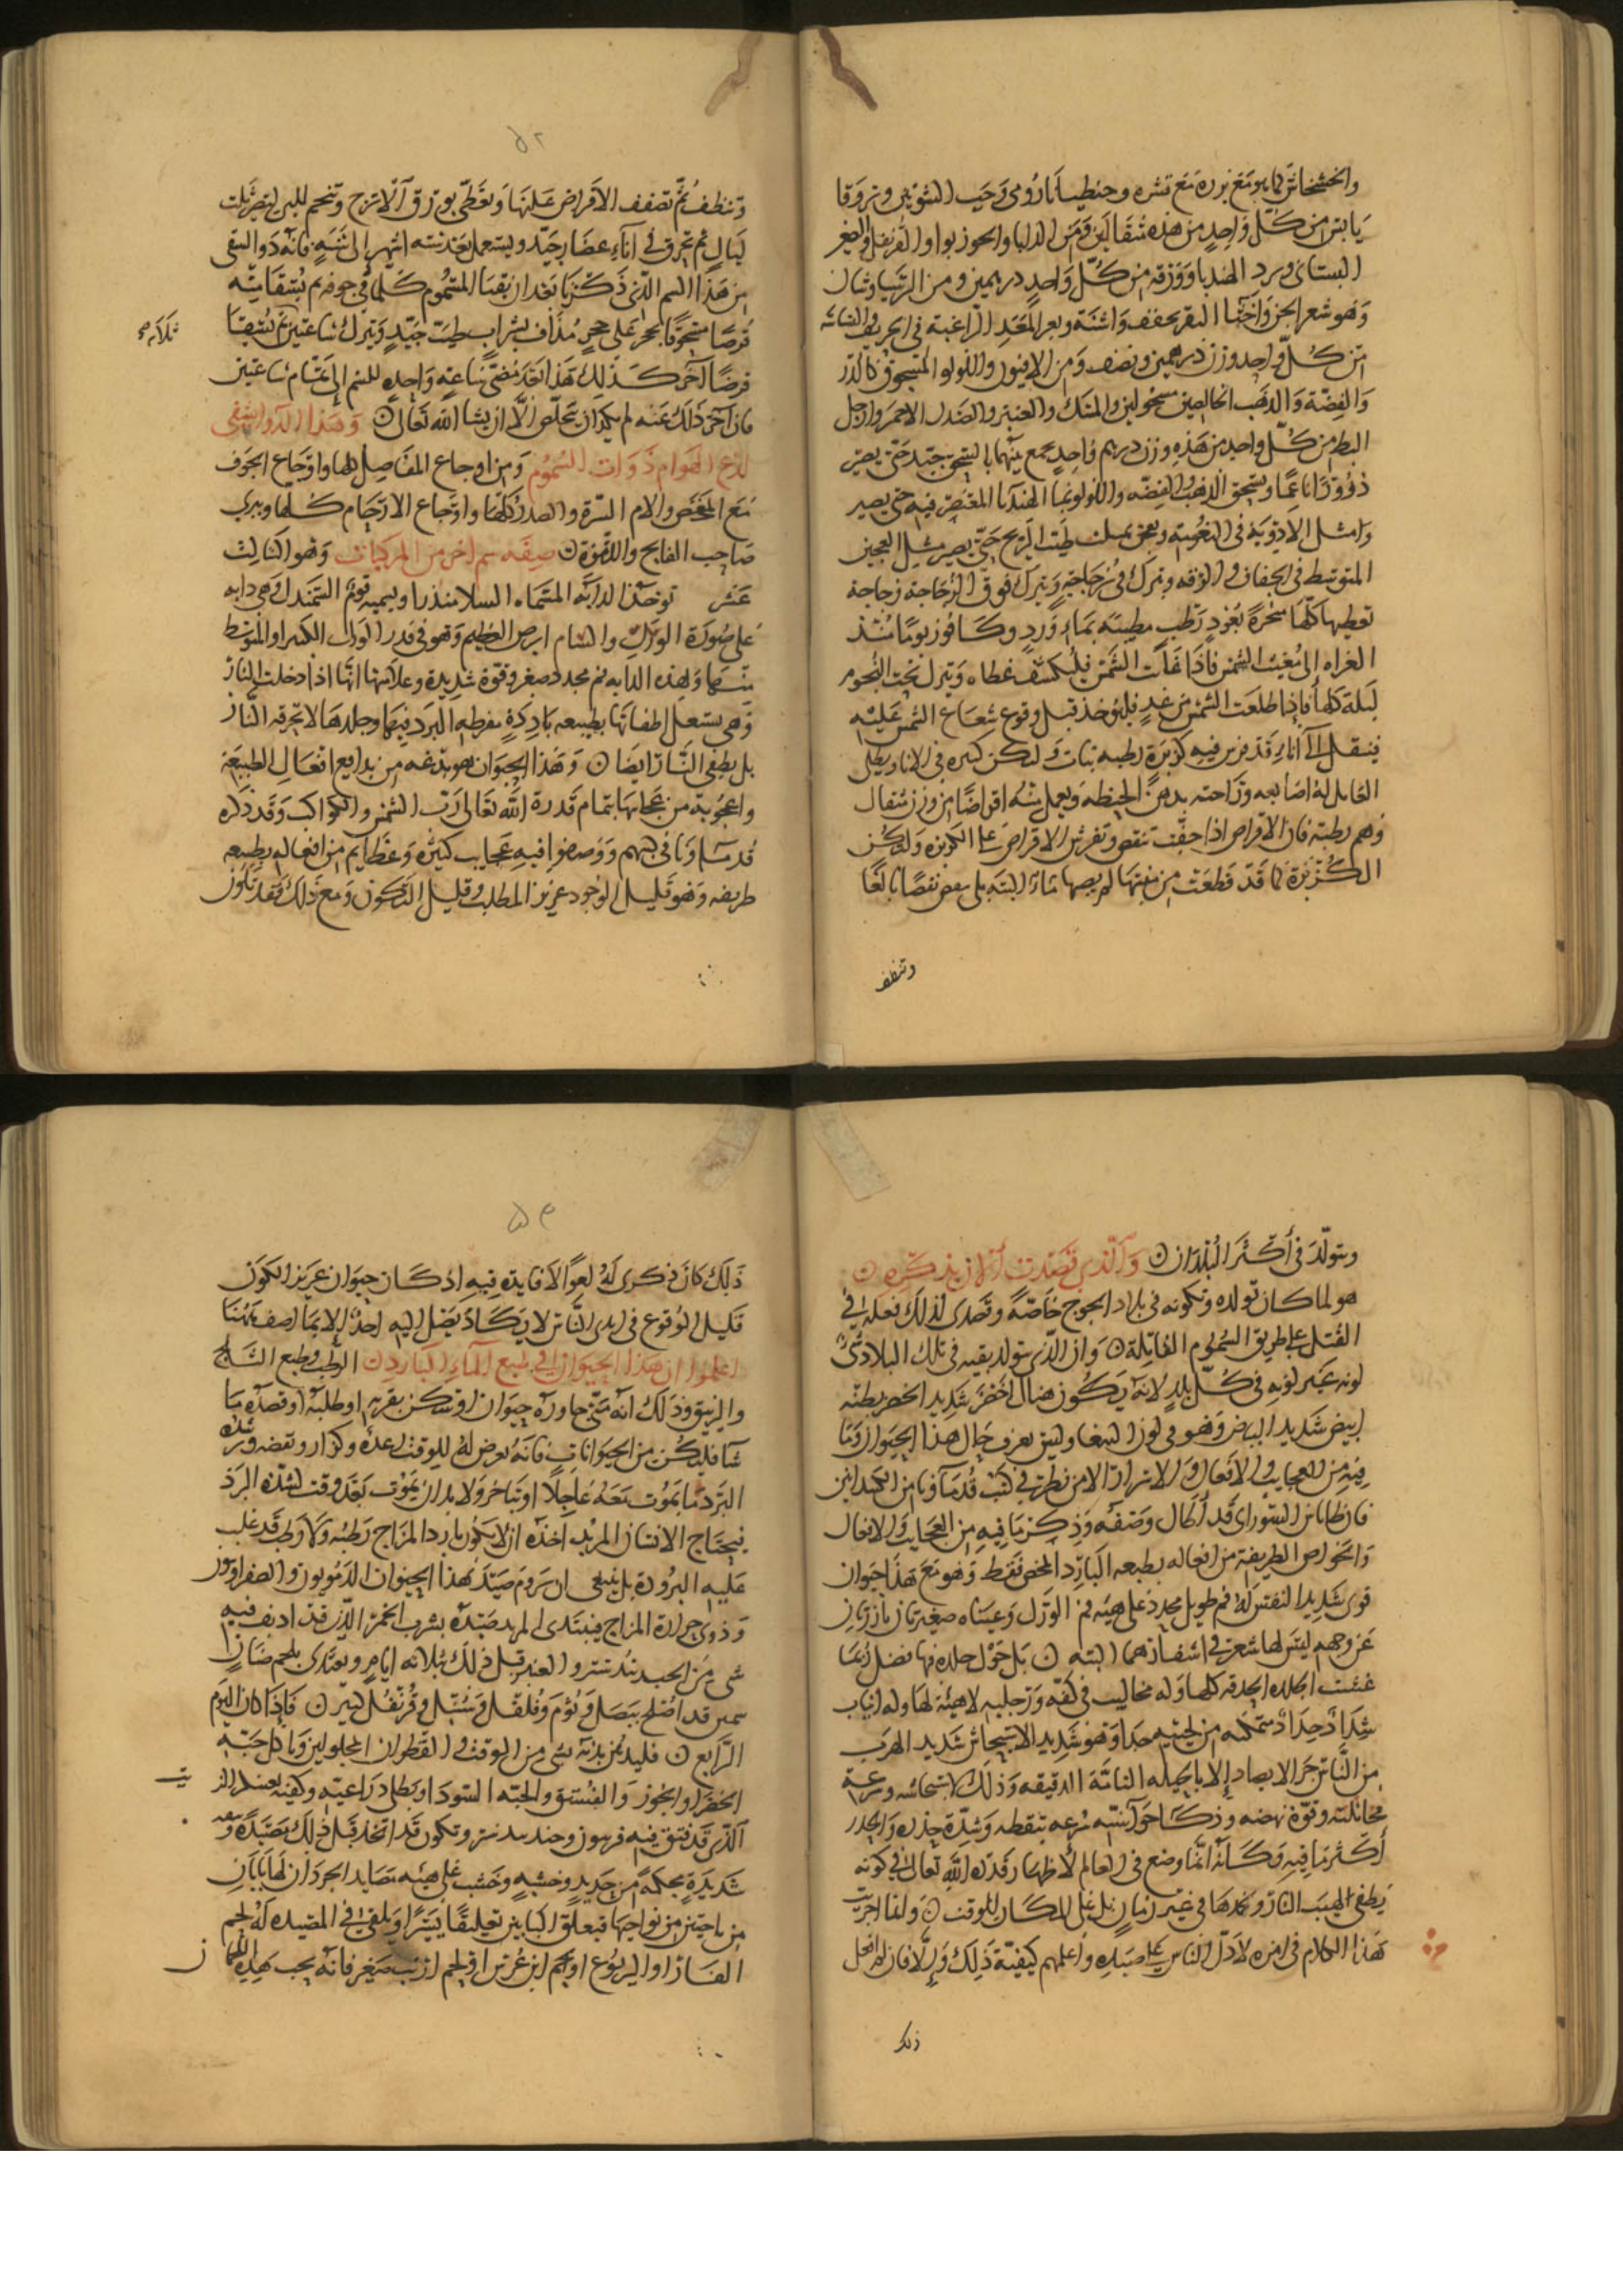 والخشخاش كما هو مع بزره مع قشره وجنطيانا رومى وحب الشونيز
يابس من كل واحد من هذه مثقالين ومن
البستانى وبرد الهندبا ووزقه من كل واحد درهمين ومن
وهو شعر الجن واخثا البقر مجفف واشنة وبعر المعز الراغبة فى
من كل واحد وزن درهمين ونصف ومن الافيون واللولو المسحوق كالذر
والفضة والذهب الخالصين منخولين والمسك والعنبر والصندل الاحمر وارجل
البط من كل واحد من هذه وزن درهم واحد يجمع بينهما بالسحق جيد حتى يصير
ذرورا ناعما ويسحق الذهب والفضه واللولو بما الهندبا المعتصر فيه حتى يصير
وامثل الادوية فى النعومة ويعجن بعسل طيب الريح حتى يصير مثل العجين
المتوسط فى الجفاف والرقه ويترك فى زجاجة ويترك فوق الزجاجة زجاجة
تغطيها كلها مبخرة بعود رطب مطيبه بماء ورد وكافور يوما منذ
الغداه الى مغيب الشمس فاذا غابت الشمس فليكشف غطاه ويترك تحت النجوم
ليلة كلها فاذا طلعت الشمس من غد فليوخذ قبل وقوع شعاع الشمس عليه
فينقل الى اناء قد فرش فيه كزبرة رطبه نبات ولتكن كثيره فى الانا ويطلى
العامل له اصابعه وراحته بدهن الحنطه ويعمل منه اقراصا من وزن مثقال
وهى رطبة فان الاقراص اذا جفت تنقص وتفرش الاقراص على الكزبره ولتكن
الكزبرة كما قد قطعت من منبتها لم يصبها ماء البتة بل ينفض نفضا بالغا
وتنظف
٥٢
وتنظف ثم تصفف الاقراص عليها وتغطى بورق الاترج وتنجم لليل يتصر ثلث
ليال ثم تحرق فى اناء غضار جيد ويستعمل بعد ستة اشهر الى سنة فانه دوا يشفى
من هذا السم الذى ذكرنا بعد ان يقيا المسموم كلما فى جوفه ثم يسقا منه
قرصا مسحوقا بحجر على حجر مذاف بشراب طيب جيد ويترك ساعتين ثم يسقا
قرصا اخر كذلك هذا بعد مضى ساعة واحده للسم الى تمام ساعتين
فان اخر ذلك عنه لم يكد ان يتخلص الا ان يشا الله تعالى ۞ وهذا الدوا يشفى
لدغ الهوام ذوات السموم ومن اوجاع المفاصل كلها واوجاع الجوف
مع المغص والام السرة والصدر كلها واوجاع الارحام كلها ويبرى
صاحب الفالج واللقوة ۞ صفه سم اخر من المركبات وهو الثالث
عشر توخذ الدابة المسماه السلامندرا ويسميه قوم السمندل وهى دابه
على صورة الورل والسام ابرص العظيم وهو فى قدر الورل الكبير او المتوسط
منها ولهذه الدابه فم مجدد صغير وقوة شديدة وعلامتها انها اذا دخلت النار
وهى تشتعل اطفاتها بطبيعه باردة مفرطه البرد فيها وجلدها لا تحرقه النار
بل يطفى النار ايضا ۞ وهذا الحيوان هو بدعه من بدايع افعال الطبيعة
واعجوبة من عجايبها بتمام قدرة الله تعالى رب الشمس والكواكب وقد ذكره
قدماونا فى كتبهم ووصفوا فيه عجايب كثيرة وعظايم من افعاله بطبيعه
طريفه وهو قليل الوجود عزيز المطلب قليل التكون ومع ذلك فقد يكون
ويتولد فى اكثر البلدان ۞ والذى قصدت الان بذكره ۞
هو لما كان تولده وتكونه فى بلاد الجوج خاصة وقصدى لذلك فعله فى
القتل على طريق السموم القاتلة ۞ وان الذى يتولد بقيه فى تلك البلاد
لونه غير لونه فى كل بلد لانه يكون هناك اخضر شديد الخضر بطنه
ابيض شديد البياض وهو فى لون الببغا وليس يعرف حال هذا الحيوان وما
فيه من العجايب والافعال والاسرار الا من نظر فى كتب قدماونا من الكسدانيين
فان طاباثا السورانى قد اطال وصفه وذكر ما فيه من العجايب والافعال
والخواص الطريفة من افعاله بطبعه البارد المحض فقط وهو مع هذا حيوان
قوى شديد النفس له فم طويل مجدد على هيئه فم الورل وعيناه صغيرتان بارزتان
عن وجهه ليس لها شعر فى اشفارهما البته ۞ بل حول جلده فيها فضل ربما
غشت الجلده الحدقه كلها وله مخاليب فى كفه ورجليه لاهيئة لها وله انياب
شداد حداد متمكنه من لحييه جدا وهو شديد الاستيحاش شديد الهرب
من الناس جدا لا يصاد الا بالحيله التامة الدقيقه وذلك لاستيحاشه وسرعة
مخاتلته وقوة نهضه وذكا حواسه سرعه تيقظه وشدة حذره والحذر
اكثر ما فيه وكانه انما وضع فى العالم لاظهار قدرة الله تعالى فى كونه
يطفى لهيب النار ويخمدها فى غير زمان بل على المكان للوقت ۞ ولقا اجريت
هذا الكلام فى امره لادل الناس على صيده واعلمهم كيفية ذلك والا فان لم افعل
ذلك
٥٣
ذلك كان ذكرى له لغوا لا فايدة فيه اذ كان حيوان عزيز الكون
قليل الوقوع فى ايدى الناس لا يكاد يصل اليه احد الا بما اصف هنا
اعلموا ان هذا الحيوان فى طبع الماء البارد ۞ الرطب وطبع الثلج
والزيبق وذلك انه متى جاوره حيوان او سكن بقربه او طلبه او قصده ما
شا فليكن من الحيوانات فانه يعرض له للوقت رعده وكزاز ونفضه وشدة
البرد ما يموت معه عاجلا او يتاخر ولا بد ان يموت بعد وقت لشدة البرد
فيحتاج الانسان المريد اخذه ان لا يكون بارد المزاج رطبه ولا من قد غلب
عليه البرودة بل ينبغى ان يروم صيد هذا الحيوان الدمويون والصفراويون
وذوى حرارة المزاج فيبتدى المريد صيده بشرب الخمر الذى قد اديف فيه
شى من الجندبيدستر والعنبر قبل ذلك بثلاثه ايام ويغتذى بلحم ضان
سمين قد اصلح ببصل وثوم وفلفل وسنبل وقرنفل كثير ۞ فاذا كان اليوم
الرابع ۞ فليدهن بدنه بشى من الزفت والقطران المحلولين وياكل حبة
الخضرا والجوز والفستق والحبه السودا ويطلى ذراعيه وكفيه بعسل
الذى قد فتق فيه فربيون وجندبيدستر وتكون قد اتخذ قبل ذلك مصيدة
شديدة محكمة من حديد وخشبه وخشب على هيئه مصايد الجرذان لها بابان
من ناحيتين من نواحيها فيعلق البابين تعليقا يسيرا ويلقى فى المصيده له لحم
الفار او اليربوع او لحم ابن عرس او لحم ارنب صغير فانه يحب هذه